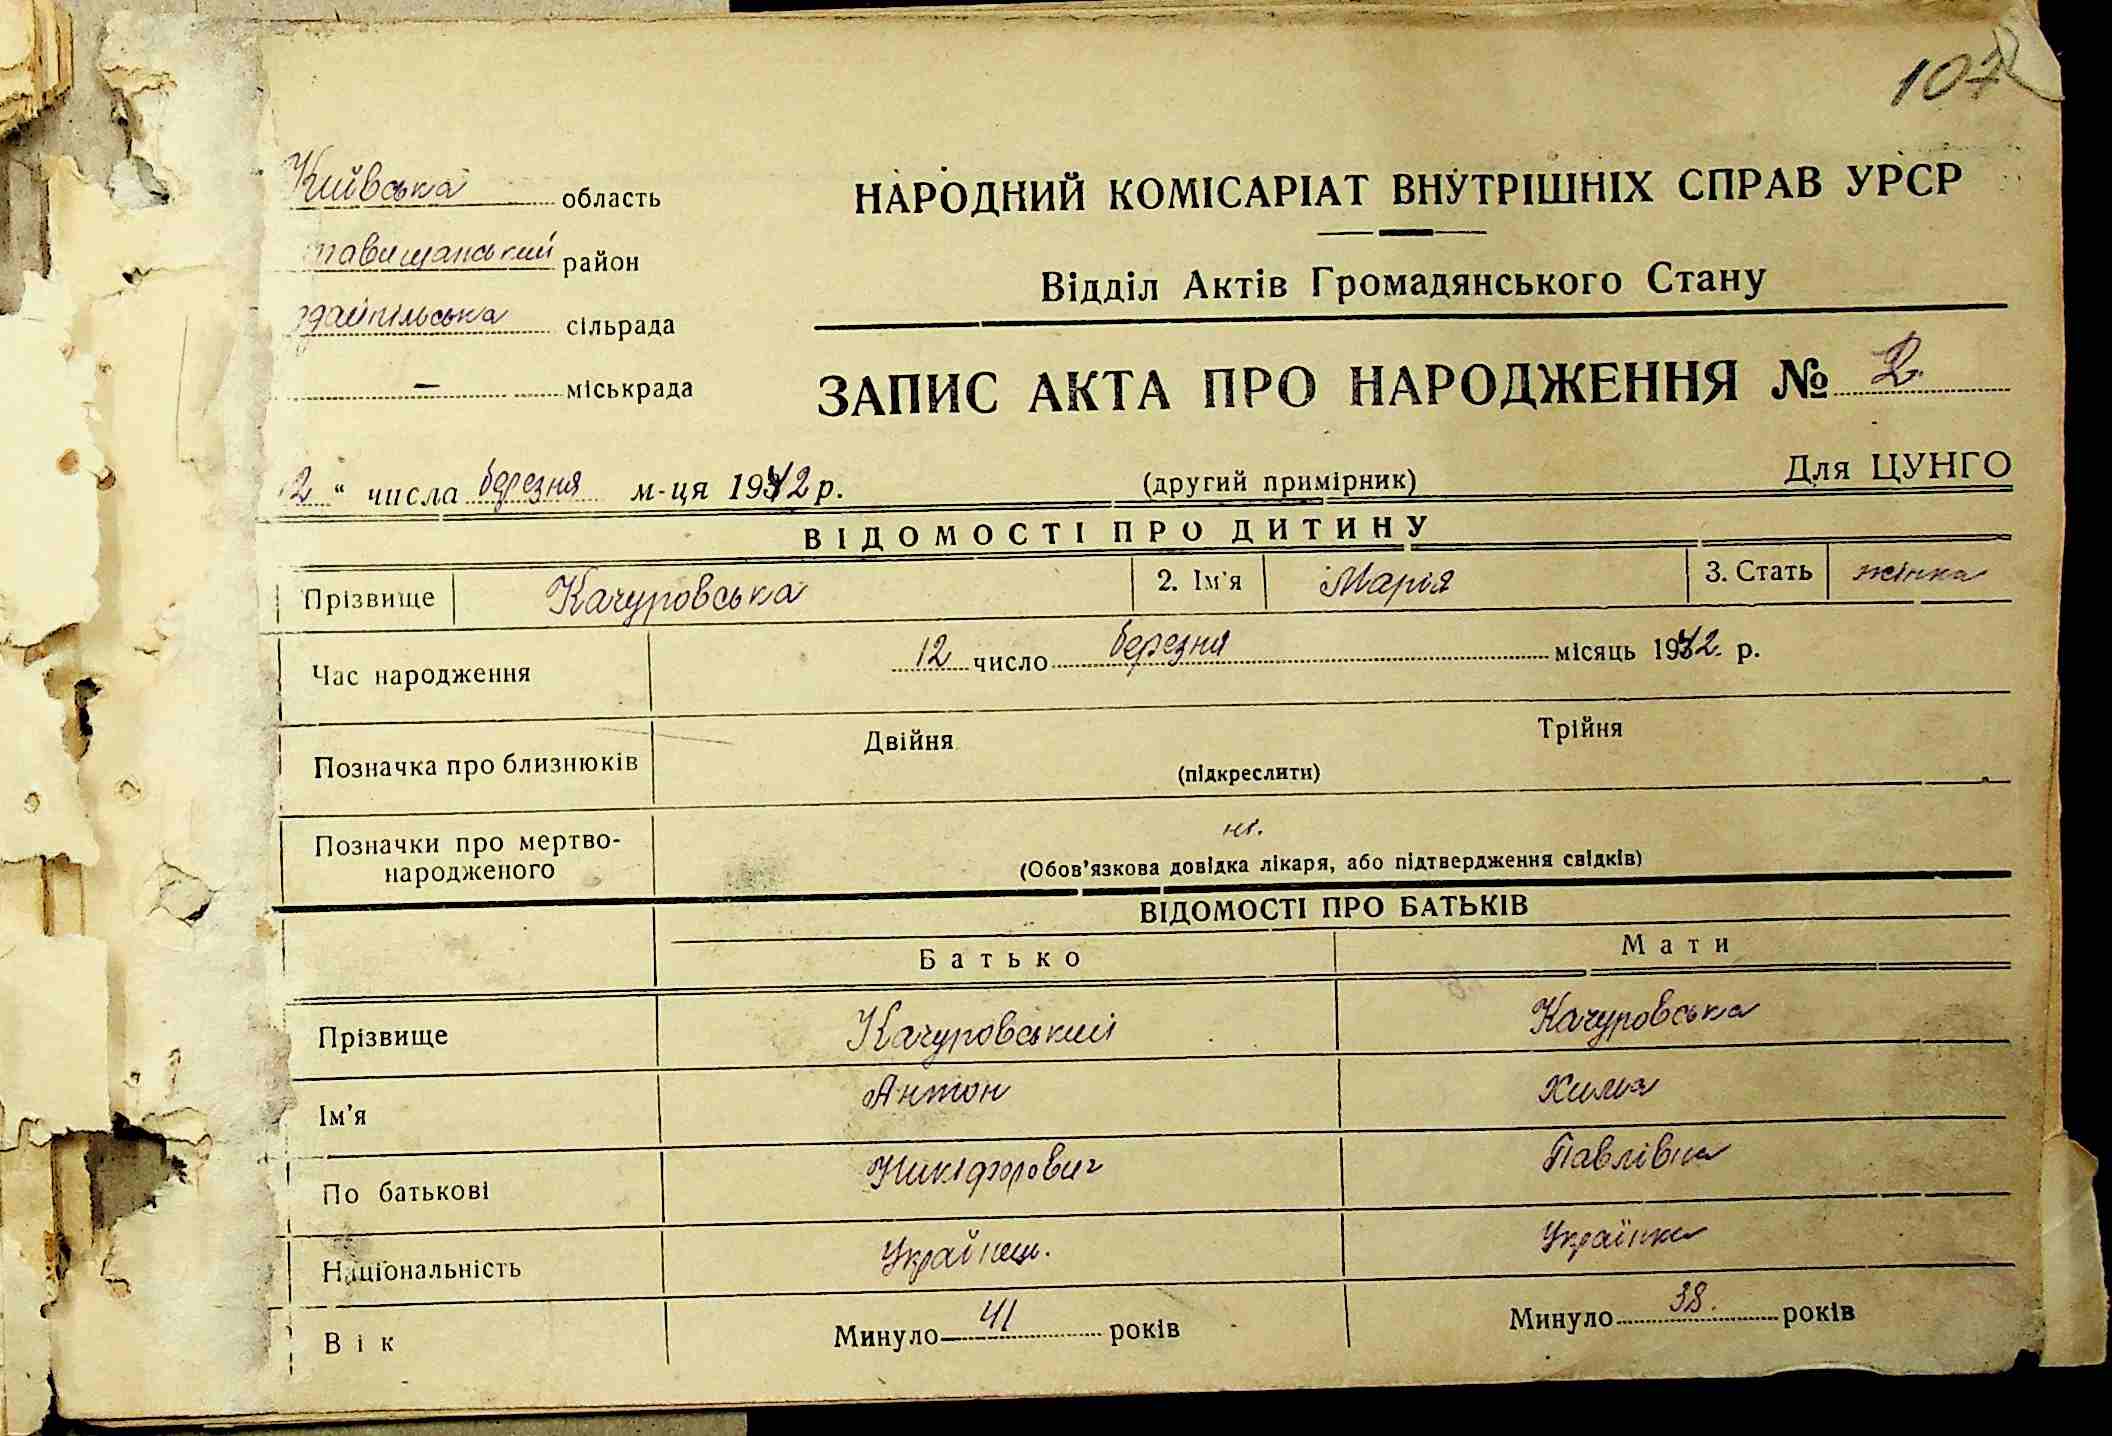 107
Київська область
НАРОДНИЙ КОМІСАРІАТ ВНУТРІШНІХ СПРАВ УРСР
тавищанський район
Відділ Актів Громадянського Стану
сільрада
— міськрада
ЗАПИС АКТА ПРО НАРОДЖЕННЯ № 2
12 " числа березня м-ця 1942 р.
(другий примірник)
Для ЦУНГО
ВІДОМОСТІ ПРО ДИТИНУ
Прізвище Качуровська 2. Ім'я Марія 3. Стать жінка
Час народження 12 число березня місяць 1942 р.
Позначка про близнюків Двійня Трійня
(підкреслити)
Позначки про мертво-
народженого
ні.
(Обов'язкова довідка лікаря, або підтвердження свідків)
ВІДОМОСТІ ПРО БАТЬКІВ
Батько Мати
Прізвище Качуровський Качуровська
Ім'я Антон
По батькові Никіфорович Павлівна
Національність Українець. Українка
Вік Минуло 41 років Минуло 38. років